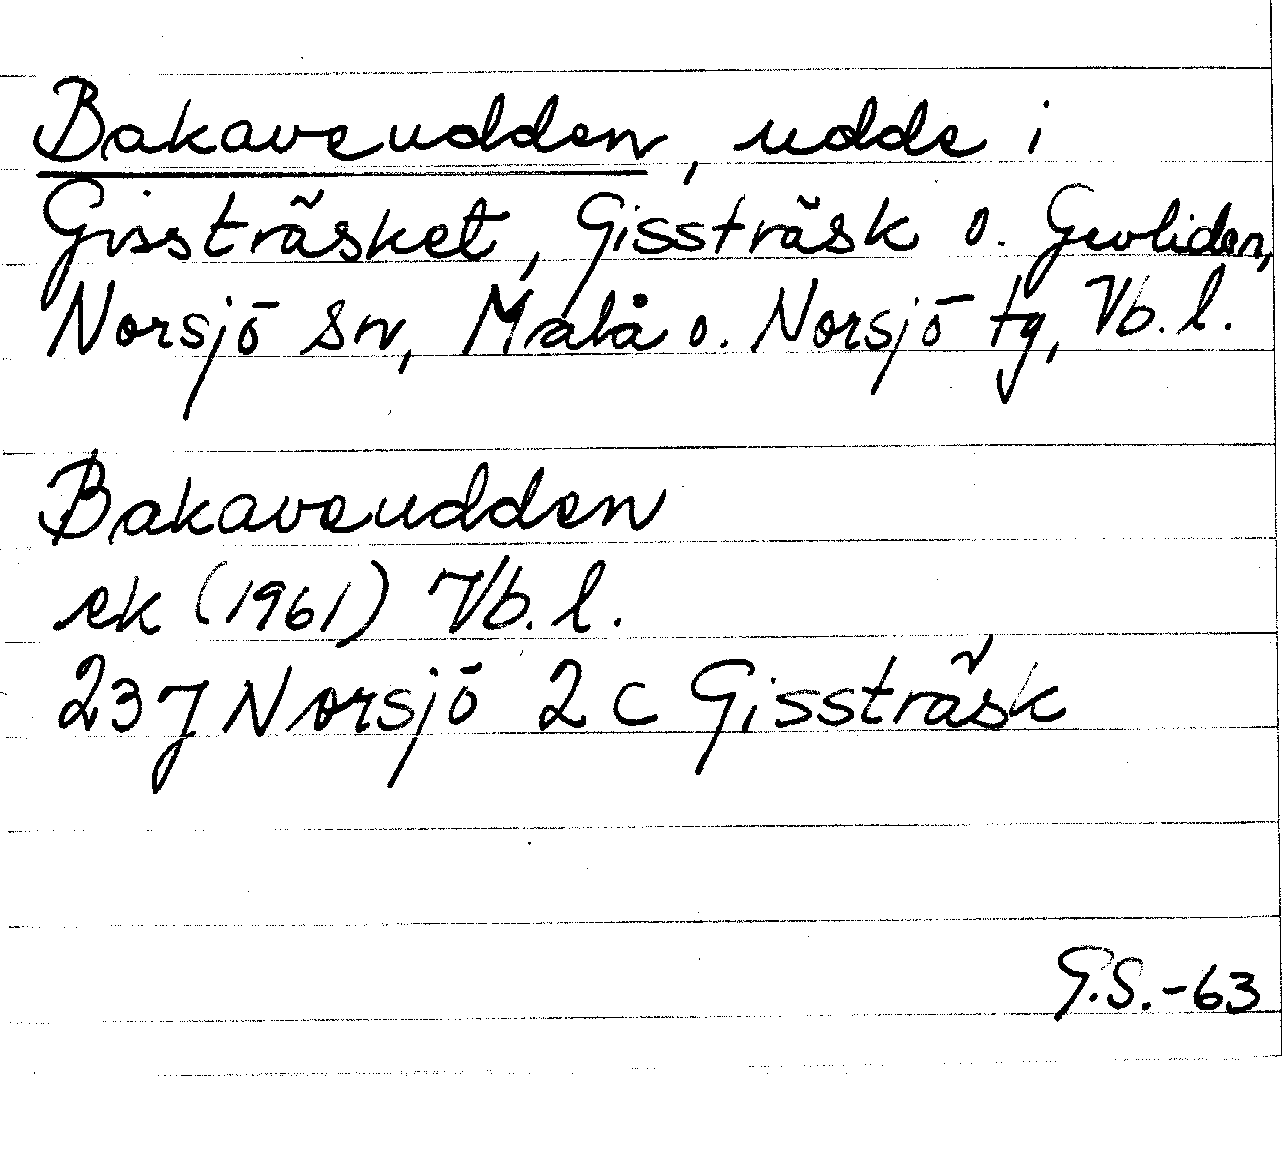 Bakaveudden, udde i
Gissträsket, Gissträsk o. Gevliden,
Norsjö sn, Malå o. Norsjö tg, Vb. l.
Bakaveudden
ek (1961) Vb. l.
23J Norsjö 2c Gissträsk
G.S.-63